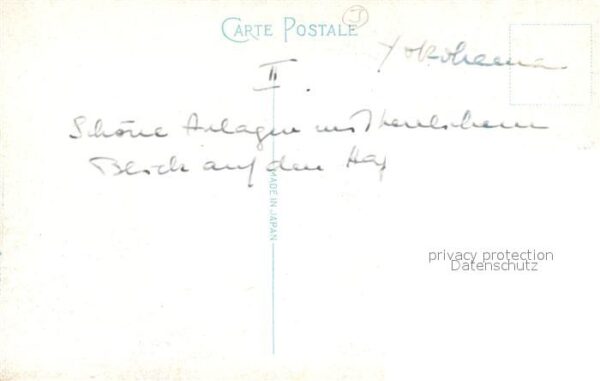 CARTE POSTALE
J
Yokohama
II.
Schöne Anlagen mit herrlichem
Blick auf den Haf
MADE IN JAPAN
privacy protection
Datenschutz